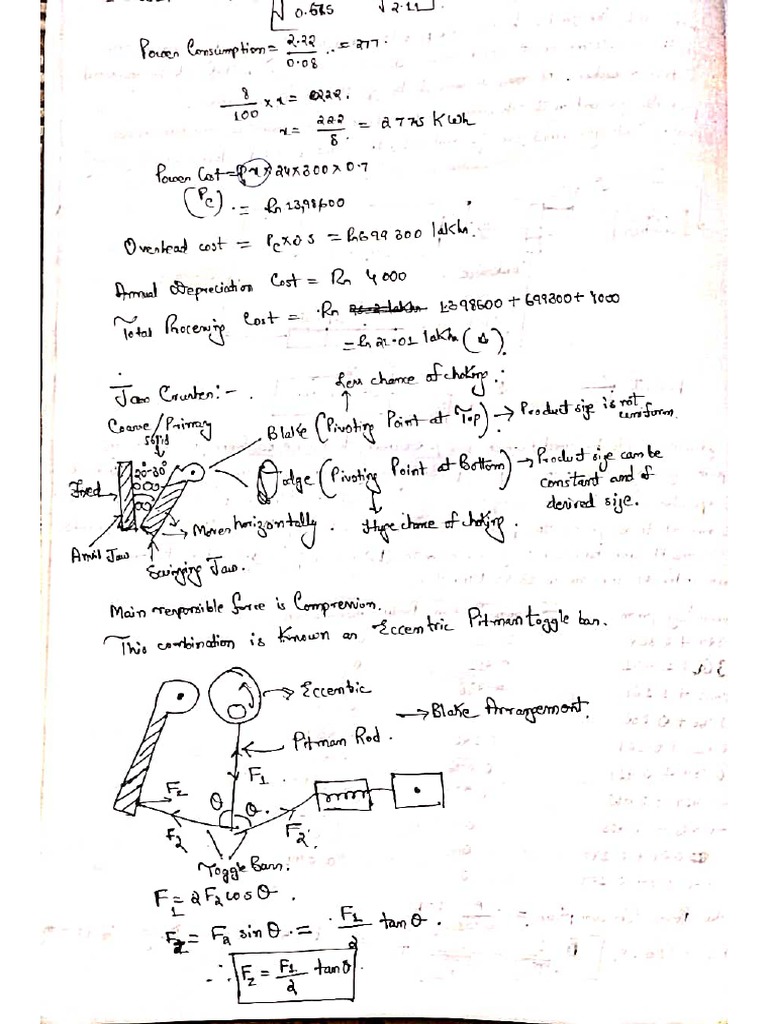 √ 0.685 √2.11
Power Consumption = 2.22 / 0.08 = 277.
8/100 × x = 222.
x = 222/8 = 2775 KWh
Power Cost = Px × 24×300×0.7
(Pc) = Rs 13,98,600
Overhead cost = Pc×0.5 = Rs 699300 lakhs.
Annual Depreciation Cost = Rs 4000
Total Processing Cost = Rs 1398600 + 699300 + 4000
= Rs 21.01 lakhs (A).
Jaw Crusher:-
Less chance of choking.
Coarse/Primary
solid
Blake (Pivoting Point at Top) → Product size is not uniform.
20°-30°
Fixed
Dodge (Pivoting Point at Bottom) → Product size can be
constant and of
desired size.
→ Moves horizontally.
Huge chance of choking.
Anvil Jaw
Swinging Jaw.
Main responsible force is Compression.
This combination is known as Eccentric Pitman toggle bar.
→ Eccentric
→ Blake Arrangement.
Pitman Rod.
F1
Fz
θ θ.
F2
F2.
Toggle Bars.
F1 = 2F2 cos θ.
Fz = F2 sin θ = F1/2 tan θ.
∴ Fz = F1/2 tan θ.